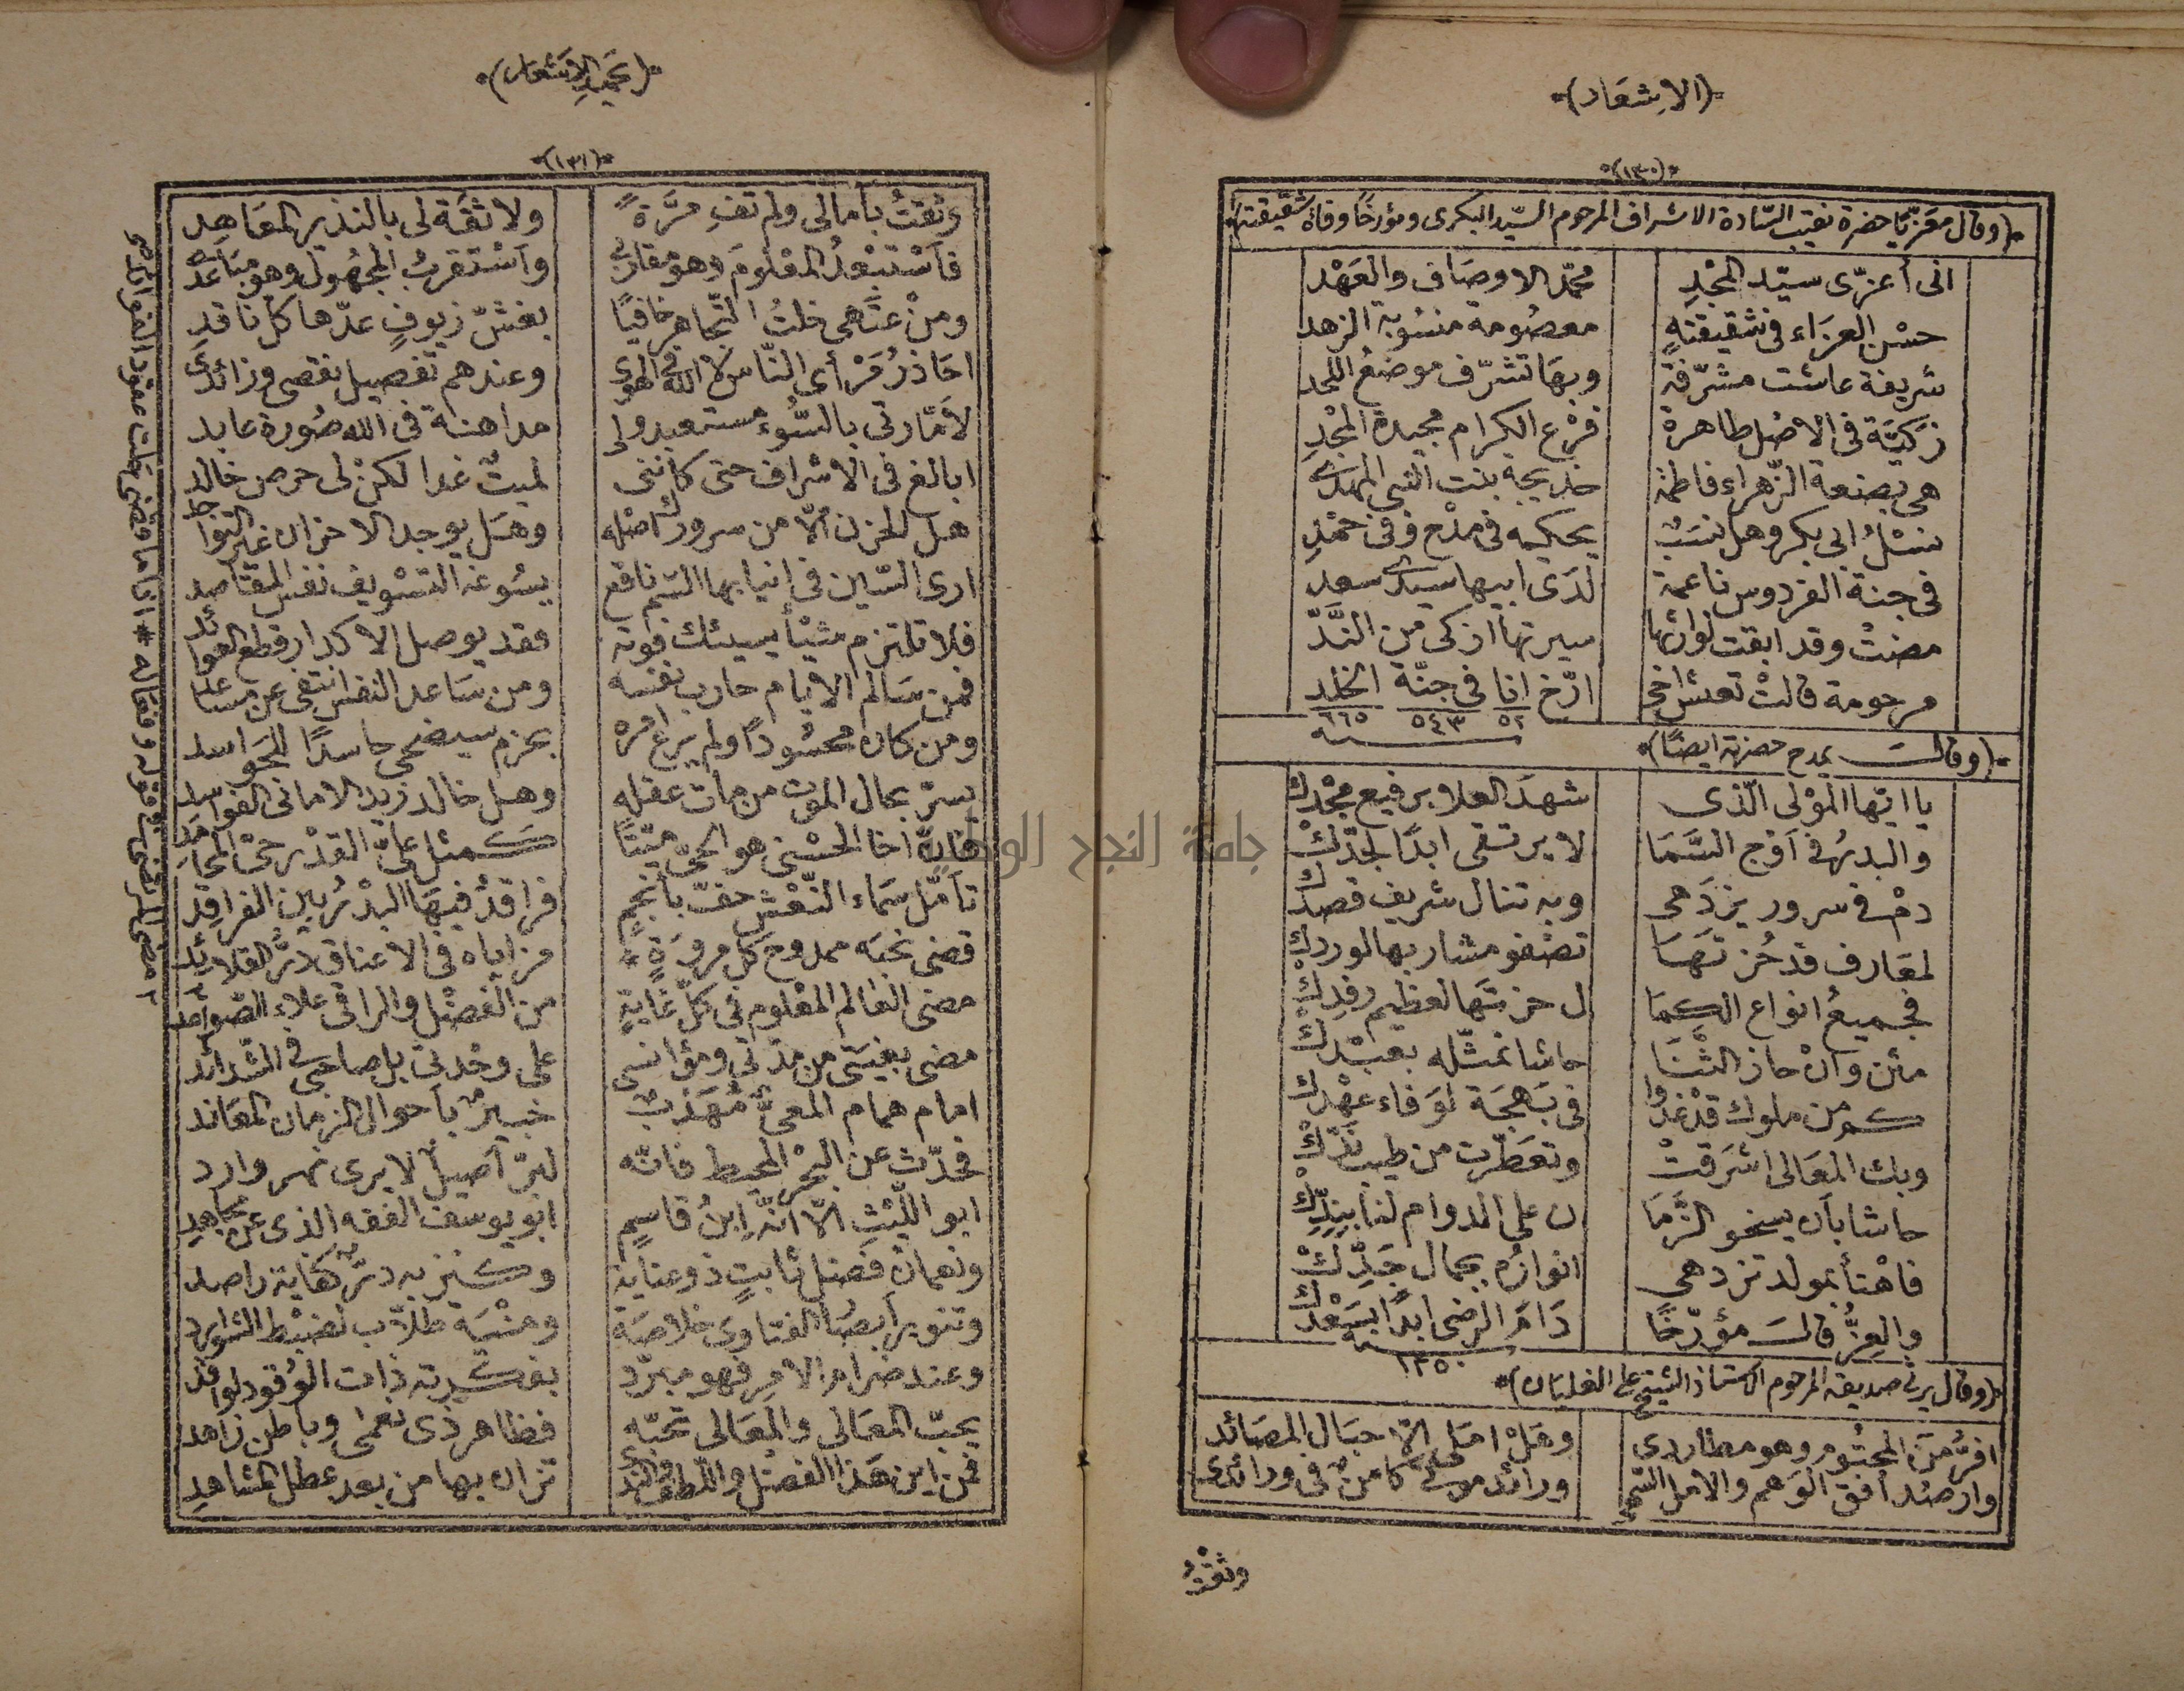 (الاشعار)
(١٣٠)
(وقال معزيًا حضرة نقيب السّادة الاشراف المرحوم السّيد البكرى ومؤرخًا وفاة شقيقته)
انى أعزّى سيّد المجْدِ محمّد الاوصَاف والعَهْد
حسْن العزَاء فى شقيقتهِ معصُومة منسُوبة الزهد
شريفة عاشت مشرّفة وبهَا تشرّف موضعُ اللحد
زكيَّة فى الاصْل طاهرة فرْع الكرام مجيدة المجْدِ
هى بضعة الزّهراء فاطمة خديجة بنت النبى المهدى
نسْلُ ابى بكر وهل نسَبٌ يحكيه فى مدْح وفى حمْدِ
فى جنة الفردوس ناعمة لدَى ابيها سيدى سعد
مضتْ وقد ابقت لوانها سيرتها ازكى من النَّدّ
مرحومة قالتْ تعش اخى ارّخ انا فى جنّة الخلد
٥٢ ٥٤٣ ٦٦٥
(وقالـت يمدح حضرته ايضًا)
يا ايّها الموْلى الّذى شهدَ العلا برفيع مجْدك
والبدرُ فى أوْج السَّمَا لا يرتقى ابدًا لجدّكْ
دمْ فى سرور يزدَهى وبه تنال شريف قصدك
لمعَارف قدْ حُزتهَا تصْفو مشاربها لوردك
فجميعُ انواع الكِمَا ل حزتهَا لعظيم رفدِك
مئن وانْ حاز الثْنَا حاشا نمثّله بعبْدك
كم من ملوك قدْ غدوا فى بَهجَة لوَفاء عهْدك
وبك المعَالى اشرَقتْ وتعَطّرت من طيب ندّكْ
حاشا بأن يسخو الزَّمَا ن على الدوام لنا بنِدِّك
فاهْنأ بمولد تزدهى انوارُه بجمال جَدِّكْ
والعِزُّ قالـتَ مؤرّخًا دَامَ الرضى ابدًا بسَعْدك
سنة ١٢٥٠
(وقال يرثى صديقه المرحوم الاستاذ الشيخ على الغليان)
افرُّ منَ المحتُوم وهو مطاردى وهَلْ امَلى الّا حبَال المصَائد
وارصُد أفق الوَهم والامل السّمى ورائد موتى كامنٌ فى ورائدى
وثقتُ
(تحميد الاشعار)
(١٣١)
وثقتُ بآمالى ولم تفِ مرَّةً ولا ثقَة لى بالنذير المعَاهِد
فأسْتبْعدُ المعْلومَ وهو مقاربى وأسْتقربُ المجهُول وهو مبَاعدى
ومنْ عتَهى خلتُ التّجاهر خافيًا بغشّ زيوفٍ عدّها كل ناقدِ
احَاذرُ مَرْأى النّاس لا الله فى الهوى وعندهم تفصيل نقصى وزائدى
لأمّارتى بالسُّوء مستعبد ولى مداهنة فى الله صُورة عابد
ابالغ فى الاسْراف حتى كأننى لميتٌ غدا لكنْ لى حرص خالد
هل الحزن الّا من سرورك اصْله وهَل يوجد الاحزان غير التواجد
ارى السّين فى انيابها السّم ناقع يسُوغه التسْويف نفس المقاصد
فلا تلتزم شيْأ يسيئك فوته فقد يوصل الاكدار قطع العوائد
فمن سَالم الايام حارب نفسه ومن سَاعد النفس انتفى عن مساعد
ومن كان محسُودًا ولم يرع امره بحزم سيضحى حاسدًا للحَواسد
يسرّ بحال الموت من مات عقله وهل خالد زيد الامانى الفواسد
فإنّ اخا الحسْنى هو الحىّ ميّتًا كمثل علىّ القدْر حىّ المحَامد
تأمّل سَماء النّعْش حفّ بأنجمٍ فراقدُ فيهَا البدْرُ بين الفراقدِ
قضى نحبَه ممدوحَ كل مروءَةٍ مزاياه فى الاعناق درّ القلائد
مضى العَالم المعْلوم فى كلّ غايةٍ من الفضْل والراقى علاء الصّواعد
مضى بغيَتى من مدّتى ومؤانسى على وحْدتى بل صاحبى فى الشدائد
امام همام المعىٌّ مُهَذبٌ خبيرٌ بأحوال الزمان المعَاند
فحدّث عن البحْر المحيط فانّه لبرّ أصيل لا يرى نهر وارد
ابو اللّيْثِ الّا انّه ابنُ قاسِمٍ ابو يوسف الفقه الذى عن مجاهد
ونعمانُ فضل ثابتٍ ذو عناية وكنز به درّ كفاية راصد
وتنوير أبصَار الفتاوى خلاصَة ومنْيَة طلّاب لضبْط الشوارد
وعند ضرام الامر فهو مبرّد بفكرته ذات الوُقود لواقد
يحبّ المعَالى والمعَالى تحبّه فظاهر ذى نعمى وباطن زاهد
فمن اين هَذا الفضْل واللّطف والندى تزان بها من بعد عطل المشاهدِ